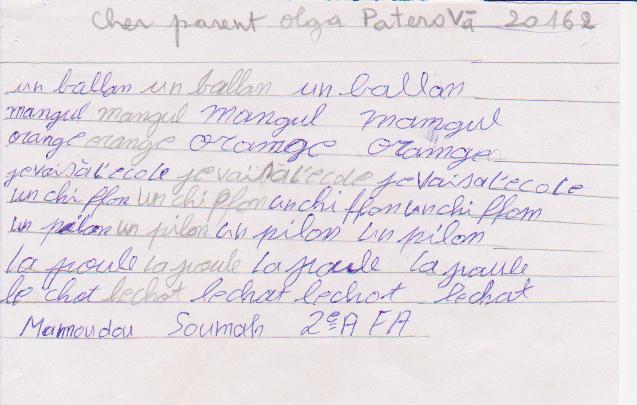 Cher parent olga Paterová 20162
un ballan un ballan un ballan
mangul mangul mangul mamgul
orange orange oramge oramge
je vaisàl'ecole je vaisàl'ecole je vaisàl'ecole
un chiffon un chiffon un chiffon un chiffom
un pilon un pilon un pilon un pilon
la poule la poule la poule la poule
le chat le chat le chat le chot le chat
Mamoudou Soumah 2eA FA